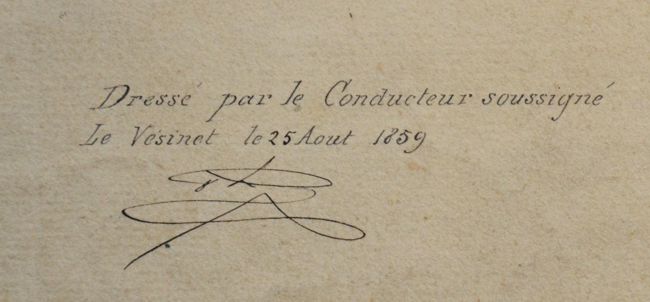 Dressé par le Conducteur soussigné
Le Vésinet le 25 Aout 1859